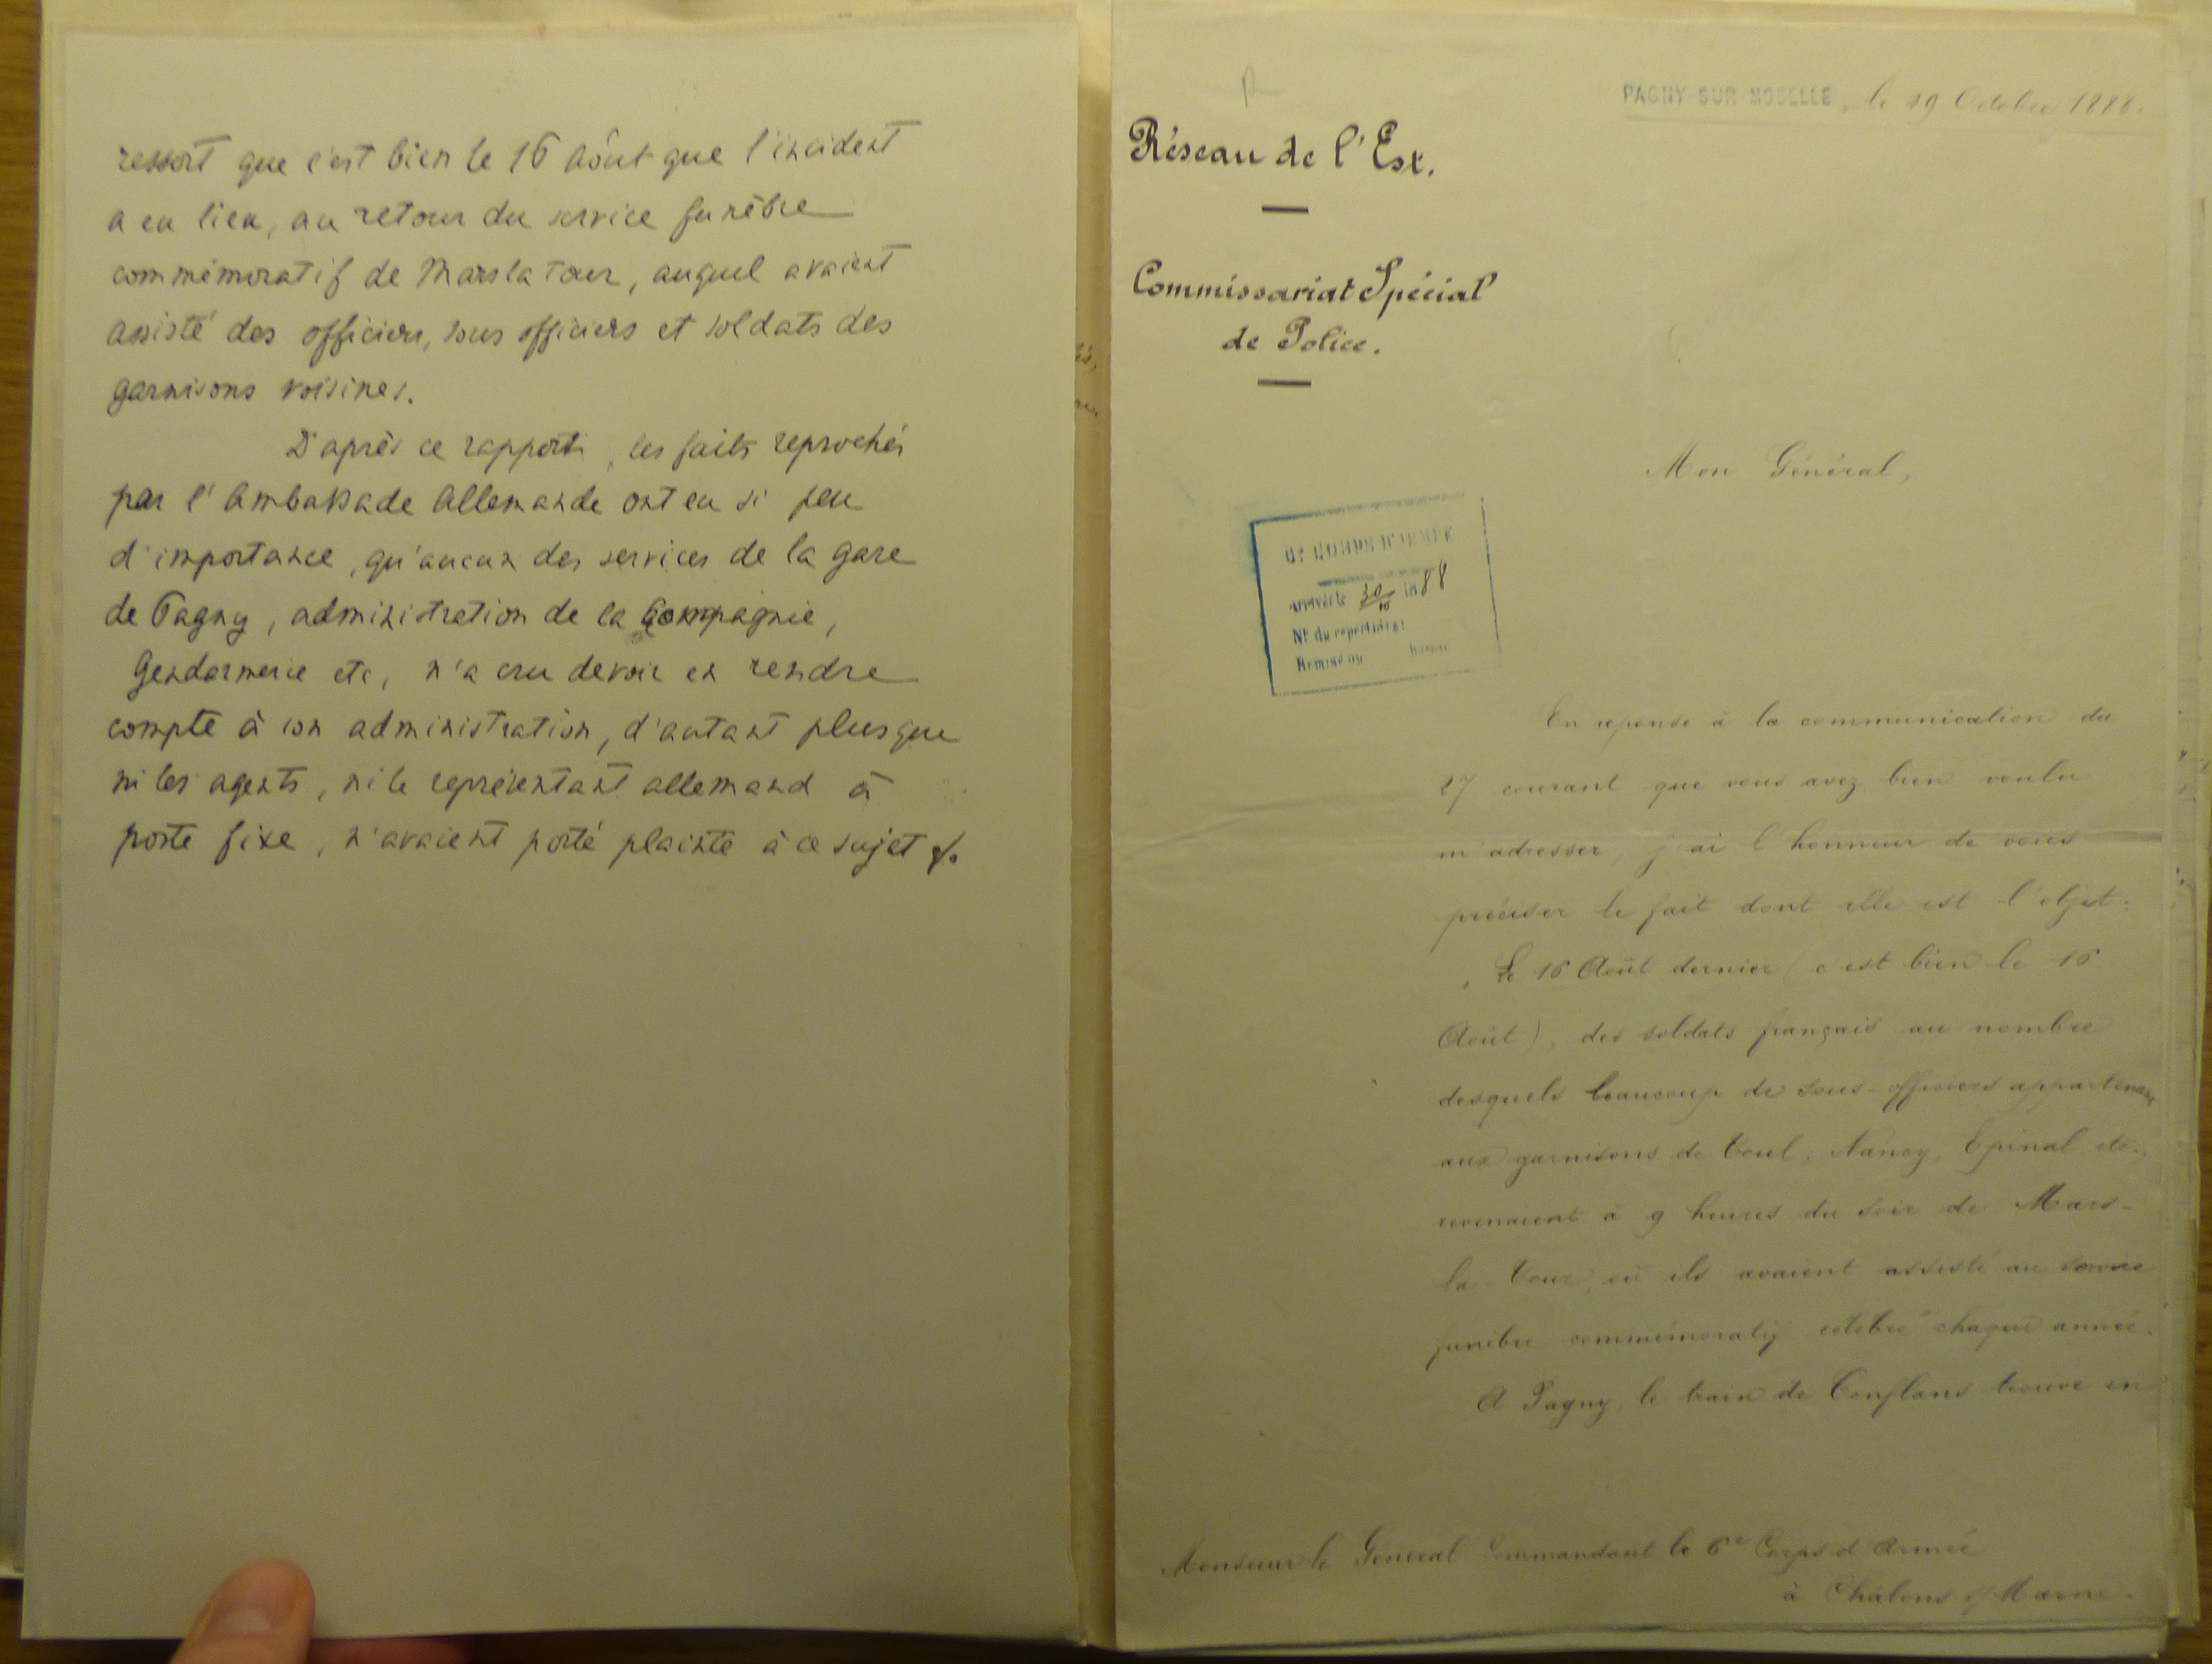 ressort que c'est bien le 16 août que l'incident
a eu lieu, au retour du service funèbre
commémoratif de Mars la Tour, auquel avaient
assisté des officiers, sous officiers et soldats des
garnisons voisines.
D'après ce rapport, les faits reprochés
par l'Ambassade Allemande ont eu si peu
d'importance, qu'aucun des services de la gare
de Pagny, administration de la Compagnie,
Gendarmerie etc, n'a cru devoir en rendre
compte à son administration, d'autant plus que
ni les agents, ni le représentant allemand à
poste fixe, n'avaient porté plainte à ce sujet
PAGNY SUR MOSELLE, le 29 Octobre 1888.
Réseau de l'Est.
Commissariat Spécial
de Police.
Mon Général,
6e CORPS D'ARMÉE
Arrivée le 30/10 1888
N° du répertoire:
Remise au bureau
En réponse à la communication du
27 courant que vous avez bien voulu
m'adresser, j'ai l'honneur de vous
préciser le fait dont elle est l'objet:
Le 16 Août dernier (c'est bien le 16
Août), des soldats français au nombre
desquels beaucoup de sous-officiers appartenant
aux garnisons de Toul, Nancy, Epinal etc.,
revenaient à 9 heures du soir de Mars-
la Tour, où ils avaient assisté au service
funèbre commémoratif célébré chaque année.
A Pagny, le train de Conflans trouve en
Monsieur le Général Commandant le 6e Corps d'Armée
à Châlons s/Marne.